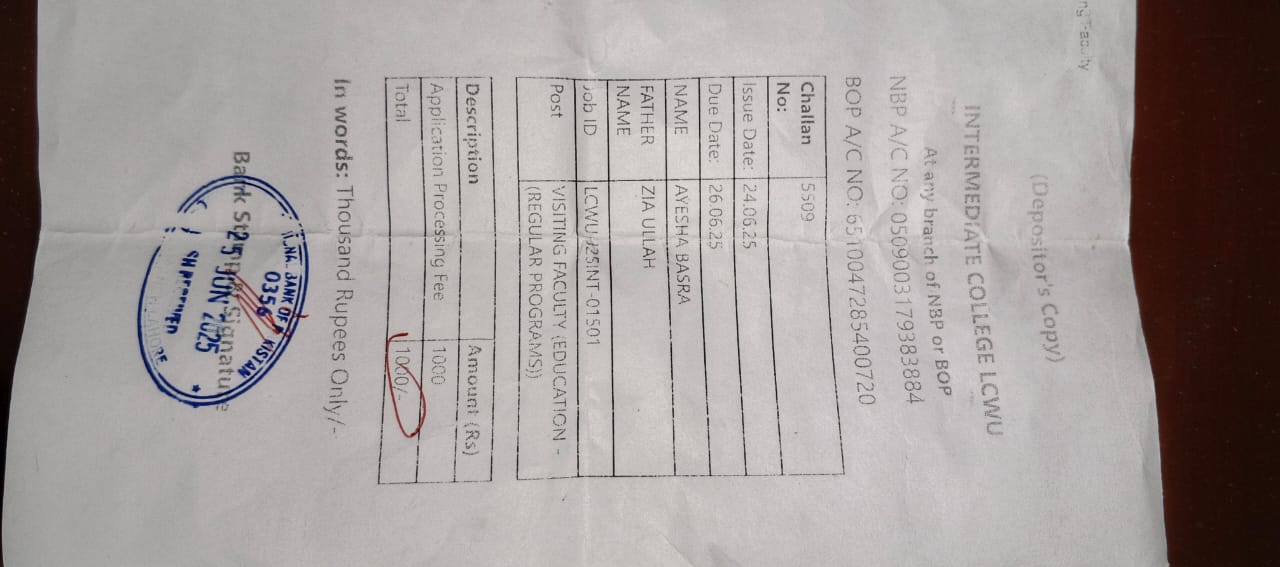 (Depositor's Copy)
INTERMEDIATE COLLEGE LCWU
At any branch of NBP or BOP
NBP A/C NO: 0509003179383884
BOP A/C NO: 6510047285400720
Challan No: 5509
Issue Date: 24.06.25
Due Date: 26.06.25
NAME AYESHA BASRA
FATHER NAME ZIA ULLAH
Job ID LCWU-J25INT-01501
Post VISITING FACULTY (EDUCATION -
(REGULAR PROGRAMS))
Description Amount (Rs)
Application Processing Fee 1000
Total 1000/-
In words: Thousand Rupees Only/-
Bank Stamp Signature
BANK OF
0356
25 JUN 2025
LAHORE